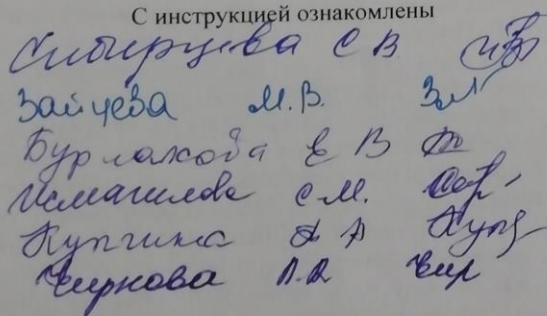 С инструкцией ознакомлены
Сибирцева С В
Зайцева М.В.
Бурлакова Е В
Исмагилова С.М.
Купчина А А Куп
Чирнова Л.А Чир